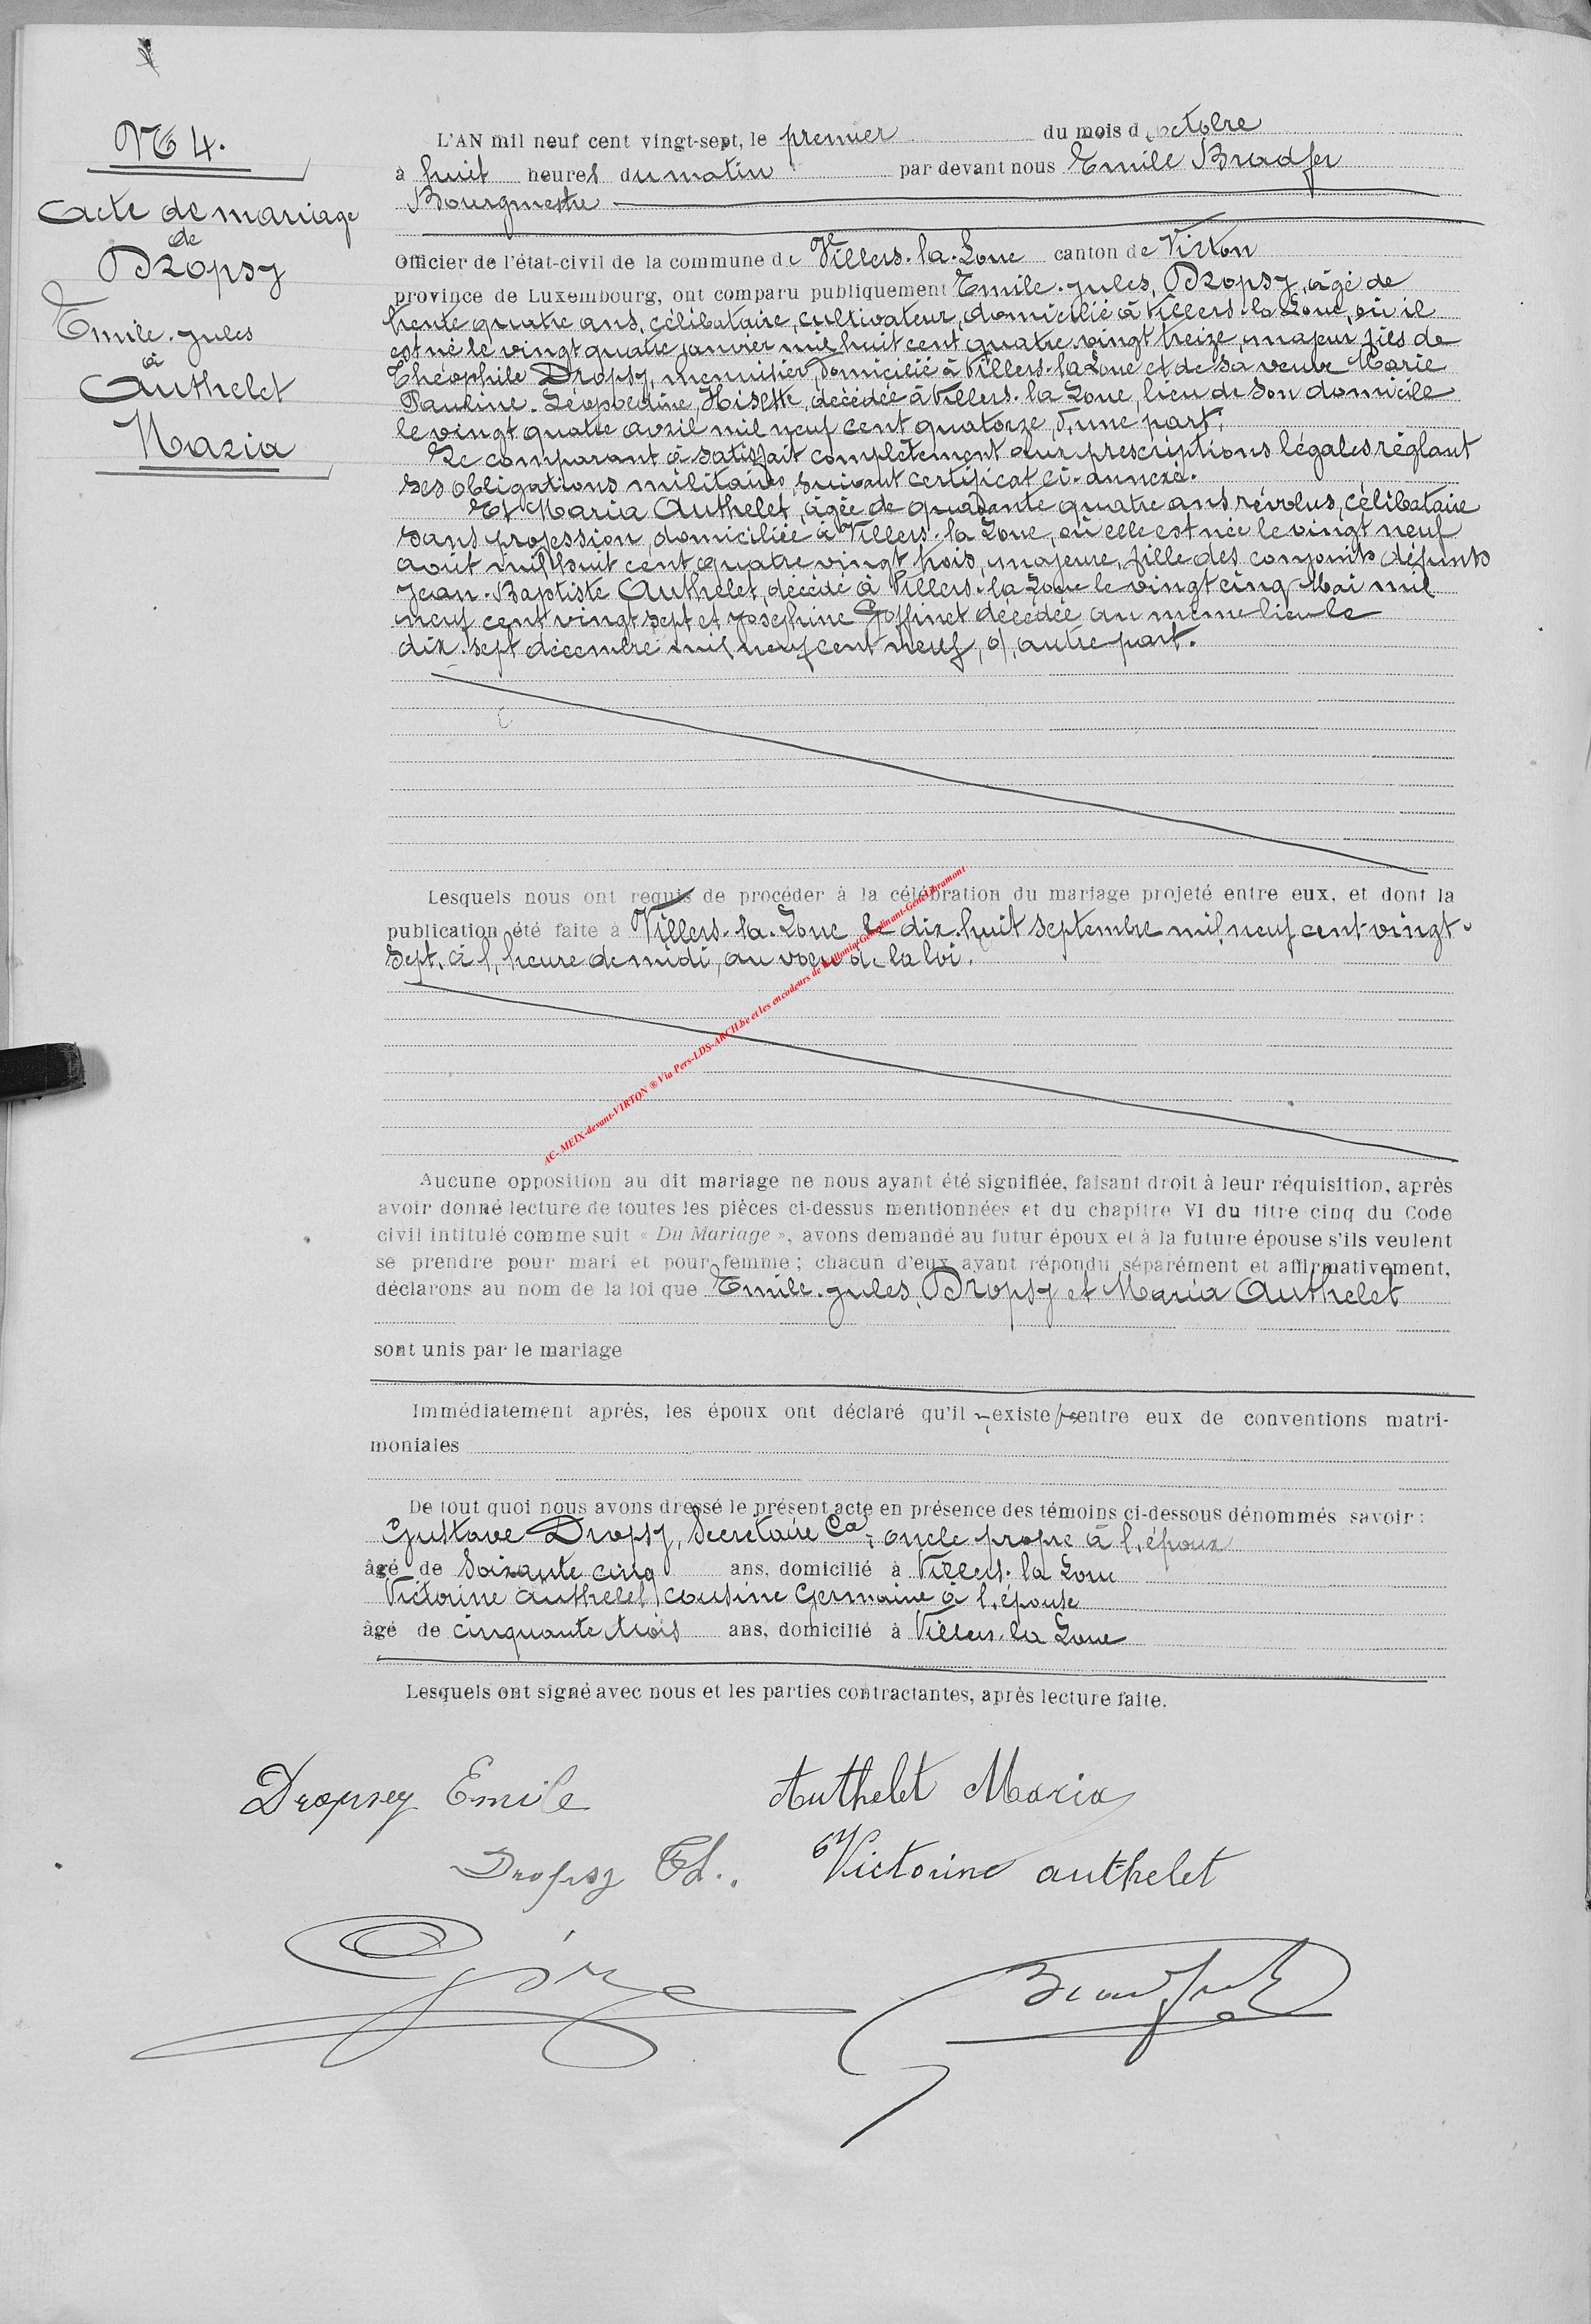 N° 4.
Acte de mariage
de
Dropsy
Emile-Jules
à
Authelet
Maria
L'AN mil neuf cent vingt-sept, le premier du mois d'octobre
à huit heures du matin par devant nous Emile Bradfer
Bourgmestre
Officier de l'état-civil de la commune de Villers-la-Loue canton de Virton
province de Luxembourg, ont comparu publiquement Emile-Jules, Dropsy, âgé de
trente quatre ans, célibataire, cultivateur, domicilié à Villers-la-Loue, où il
est né le vingt quatre janvier mil huit cent quatre-vingt treize, majeur, fils de
Théophile Dropsy, menuisier, domicilié à Villers-la-Loue et de sa veuve Marie
Pauline-Léopoldine, Hisette, décédée à Villers-la-Loue, lieu de son domicile
le vingt quatre avril mil neuf cent quatorze, d'une part;
Le comparant à satisfait complètement aux prescriptions légales réglant
ses obligations militaires, suivant certificat ci-annexé.
Et Maria Authelet, âgée de quarante quatre ans révolus, célibataire
sans profession, domiciliée à Villers-la-Loue, où elle est née le vingt neuf
août mil huit cent quatre vingt trois, majeure, fille des conjoints défunts
Jean-Baptiste Authelet, décédé à Villers-la-Loue le vingt cinq Mai mil
neuf cent vingt sept et Joséphine Goffinet décédée au même lieu le
dix-sept décembre mil neuf cent neuf, d'autre part.
Lesquels nous ont requis de procéder à la célébration du mariage projeté entre eux, et dont la
publication été faite à Villers-la-Loue le dix-huit septembre mil neuf cent vingt-
sept, à l'heure de midi, au voeu de la loi.
AC- MEIX-devant-VIRTON ® Via Pers-LDS-ARCH.be et les encodeurs de
Aucune opposition au dit mariage ne nous ayant été signifiée, faisant droit à leur réquisition, après
avoir donné lecture de toutes les pièces ci-dessus mentionnées et du chapitre VI du titre cinq du Code
civil intitulé comme suit « Du Mariage », avons demandé au futur époux et à la future épouse s'ils veulent
se prendre pour mari et pour femme ; chacun d'eux ayant répondu séparément et affirmativement,
déclarons au nom de la loi que Emile-Jules, Dropsy et Maria Authelet
sont unis par le mariage
Immédiatement après, les époux ont déclaré qu'il n'existe pas entre eux de conventions matri-
moniales
De tout quoi nous avons dressé le présent acte en présence des témoins ci-dessous dénommés savoir :
Gustave Dropsy, Secrétaire Cal, oncle propre à l'époux
âgé de soixante cinq ans, domicilié à Villers-la-Loue
Victorine Authelet, cousine germaine à l'épouse
âgé de cinquante trois ans, domicilié à Villers-la-Loue
Lesquels ont signé avec nous et les parties contractantes, après lecture faite.
Dropsy Emile Authelet Maria
Dropsy Th. Victorine authelet
Bradfer